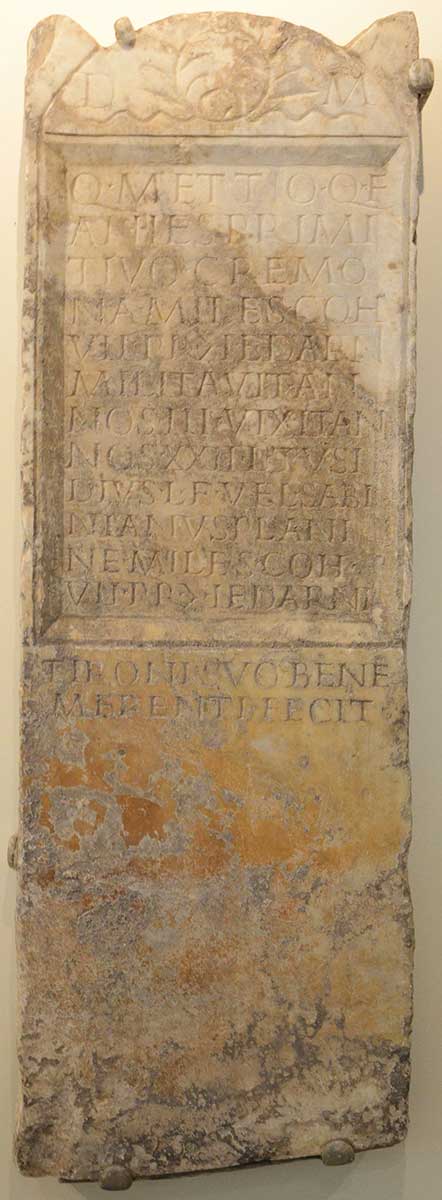 D M
Q·METTIO·Q·F
ANIIES PRIMI
TIVO CREMO
NA MILES COH
VII
MILITAVIT AN
NOS III VIXIT AN
NOS XXII
DIVS·L·F·VEL·SABI
NIANVS PLANI
NE MILES COH
VII·PR
TIRONI SVO BENE
MERENTI FECIT